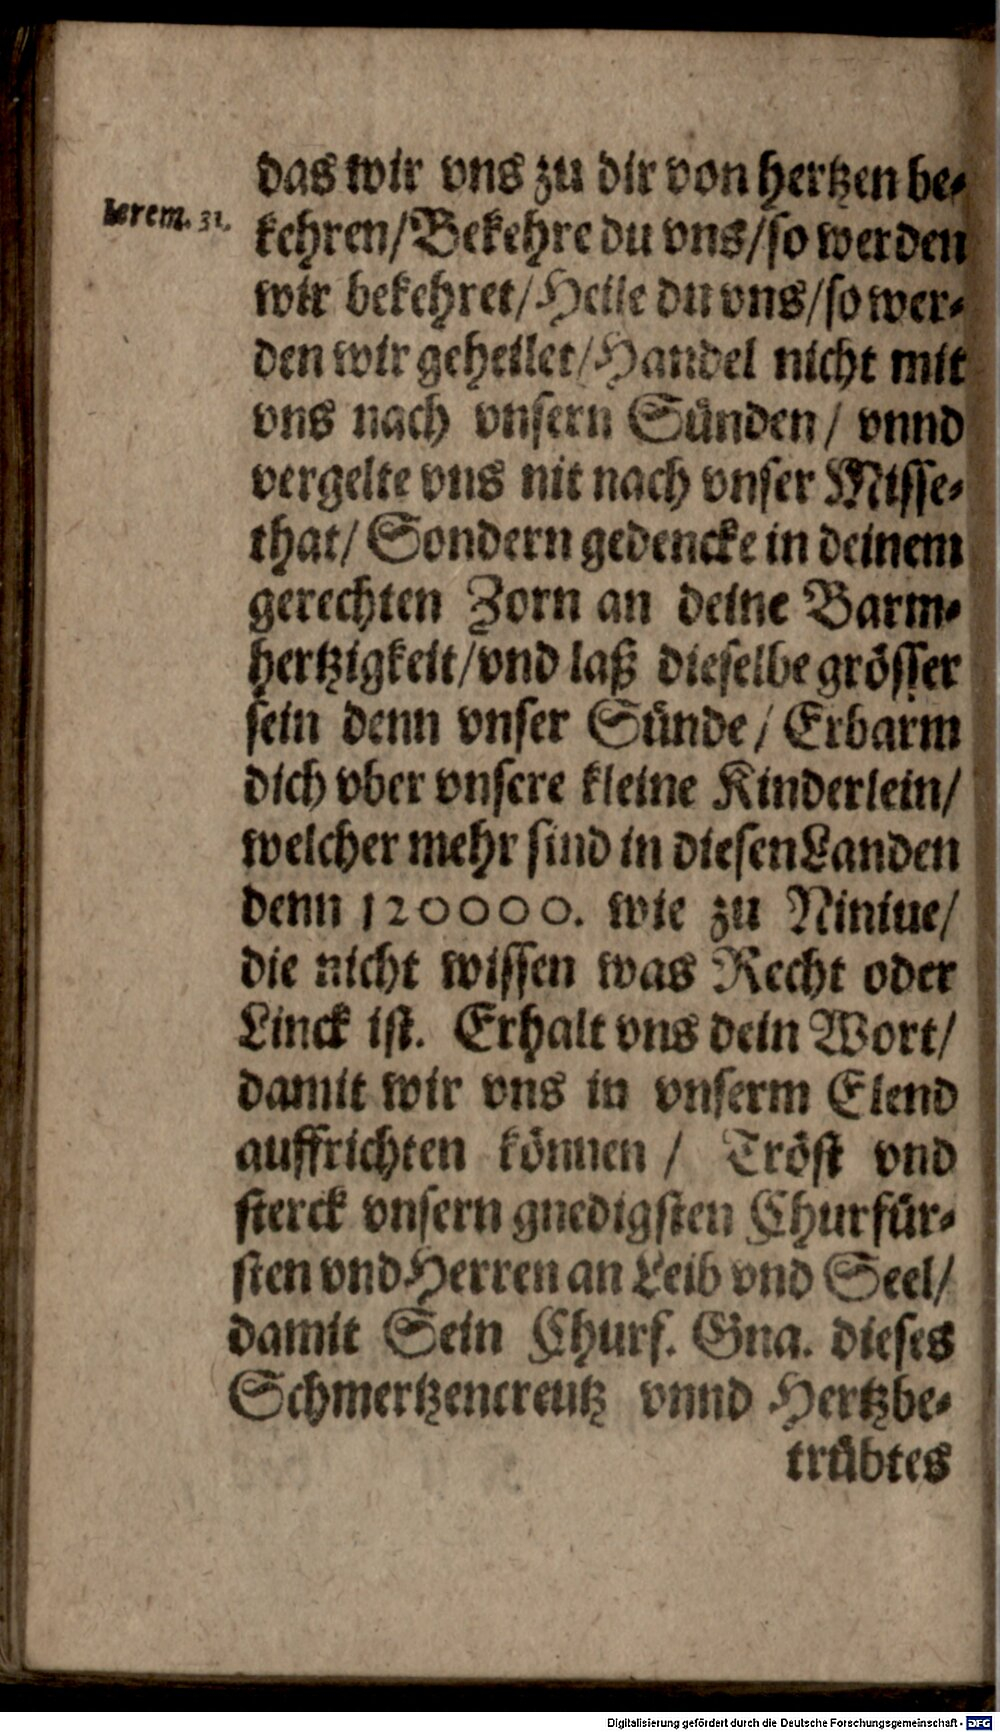 das wir vns zu dir von hertzen be-
Ierem. 31.
kehren/Bekehre du vns/so werden
wir bekehret/Heile du vns/so wer-
den wir geheilet/Handel nicht mit
vns nach vnsern Sünden/ vnnd
vergelte vns nit nach vnser Misse-
that/ Sondern gedencke in deinem
gerechten Zorn an deine Barm-
hertzigkeit/vnd laß dieselbe grösser
sein denn vnser Sünde/ Erbarm
dich vber vnsere kleine Kinderlein/
welcher mehr sind in diesen Landen
denn 120000. wie zu Niniue/
die nicht wissen was Recht oder
Linck ist. Erhalt vns dein Wort/
damit wir vns in vnserm Elend
auffrichten können / Tröst vnd
sterck vnsern gnedigsten Churfür-
sten vnd Herren an Leib vnd Seel/
damit Sein Churf. Gna. dieses
Schmertzencreutz vnnd Hertzbe-
trübtes
Digitalisierung gefördert durch die Deutsche Forschungsgemeinschaft - DFG